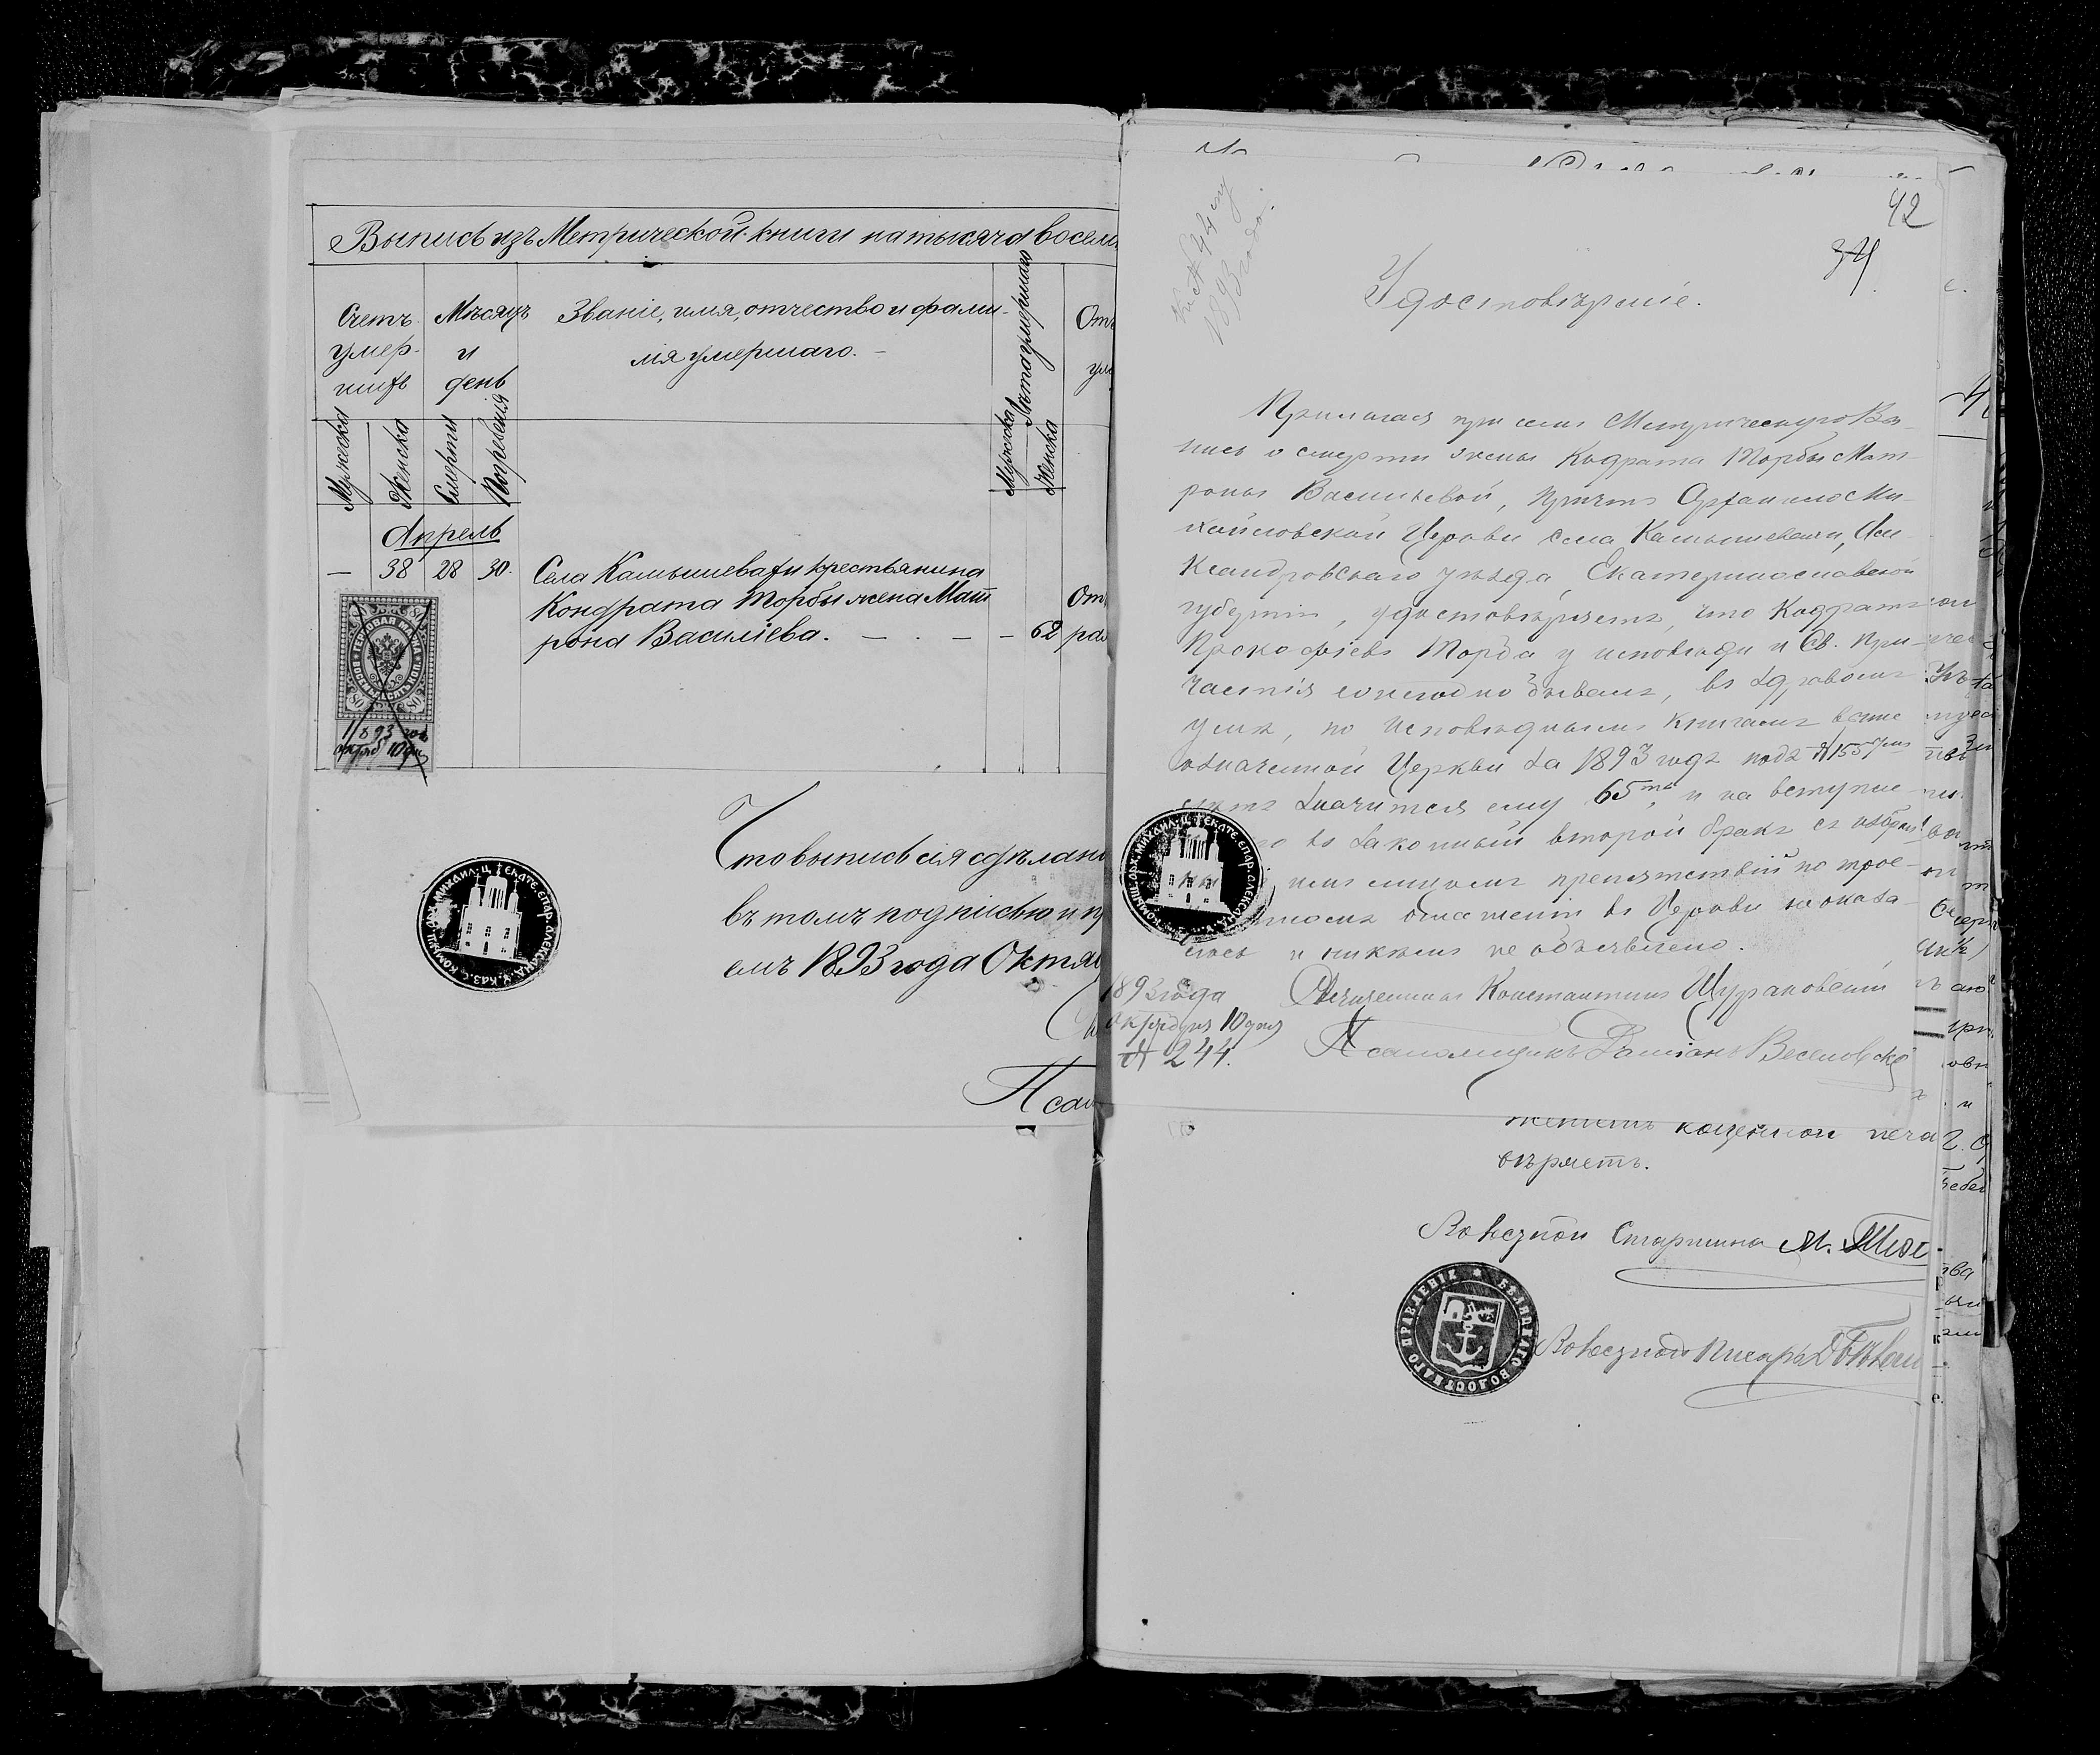 Выпись изъ Метрической книги на тысяча восем
Счетъ умер-
шихъ
Мѣсяцъ
и
день
Званіе, имя, отчество и фами-
лія умершаго. –
Лѣта умершаго
Отъ
Мужеска
Женска
Смерти
Погребенія
Мужеска
Женска
Апрель
— 38 28 30. Села Камышевахи крестьянина
Кондрата Торбы жена Мат
рона Василіева. — . — – 62
1893 года
октяб 10 дня
80 80
Что выпись сія сдѣлана
въ томъ подписью и пр
емъ 1893 года Октяб
Псал
42
34
Къ № 44 му
1893 года.
Удостовѣреніе.
Прилагая при семъ Метрическую Вы-
пись о смерти жены Кодрата Торбы Мат-
роны Васильевой, Причтъ Архангело Ми-
хайловской Церкви села Камышевахи, Але-
ксандровскаго уѣзда, Екатеринославской
губерніи, удостовѣряетъ, что Кодратъ
Прокофіевъ Торба у исповѣди и Св. При-
частія ежегодно бываетъ, въ здравомъ
умѣ, по исповѣднымъ книгамъ выше
означенной Церкви за 1893 годъ подъ № 155
лѣтъ значится ему 65ть, и на вступле-
въ законный второй бракъ съ избран
имъ лицомъ препятствій по трое-
кратномъ оглашеніи въ Церкви не оказа-
лось и никѣмъ не объявлено.
1893 года
октября 10 дня
№ 244.
Священникъ Константинъ Шурановскій
Псаломщикъ Даміанъ Веселовскі
женіемъ казенной печа
вѣряетъ.
Волостной Старшина М.
Волостной Писарь
ВОЛОСТНАГО ПРАВЛЕНІЕ